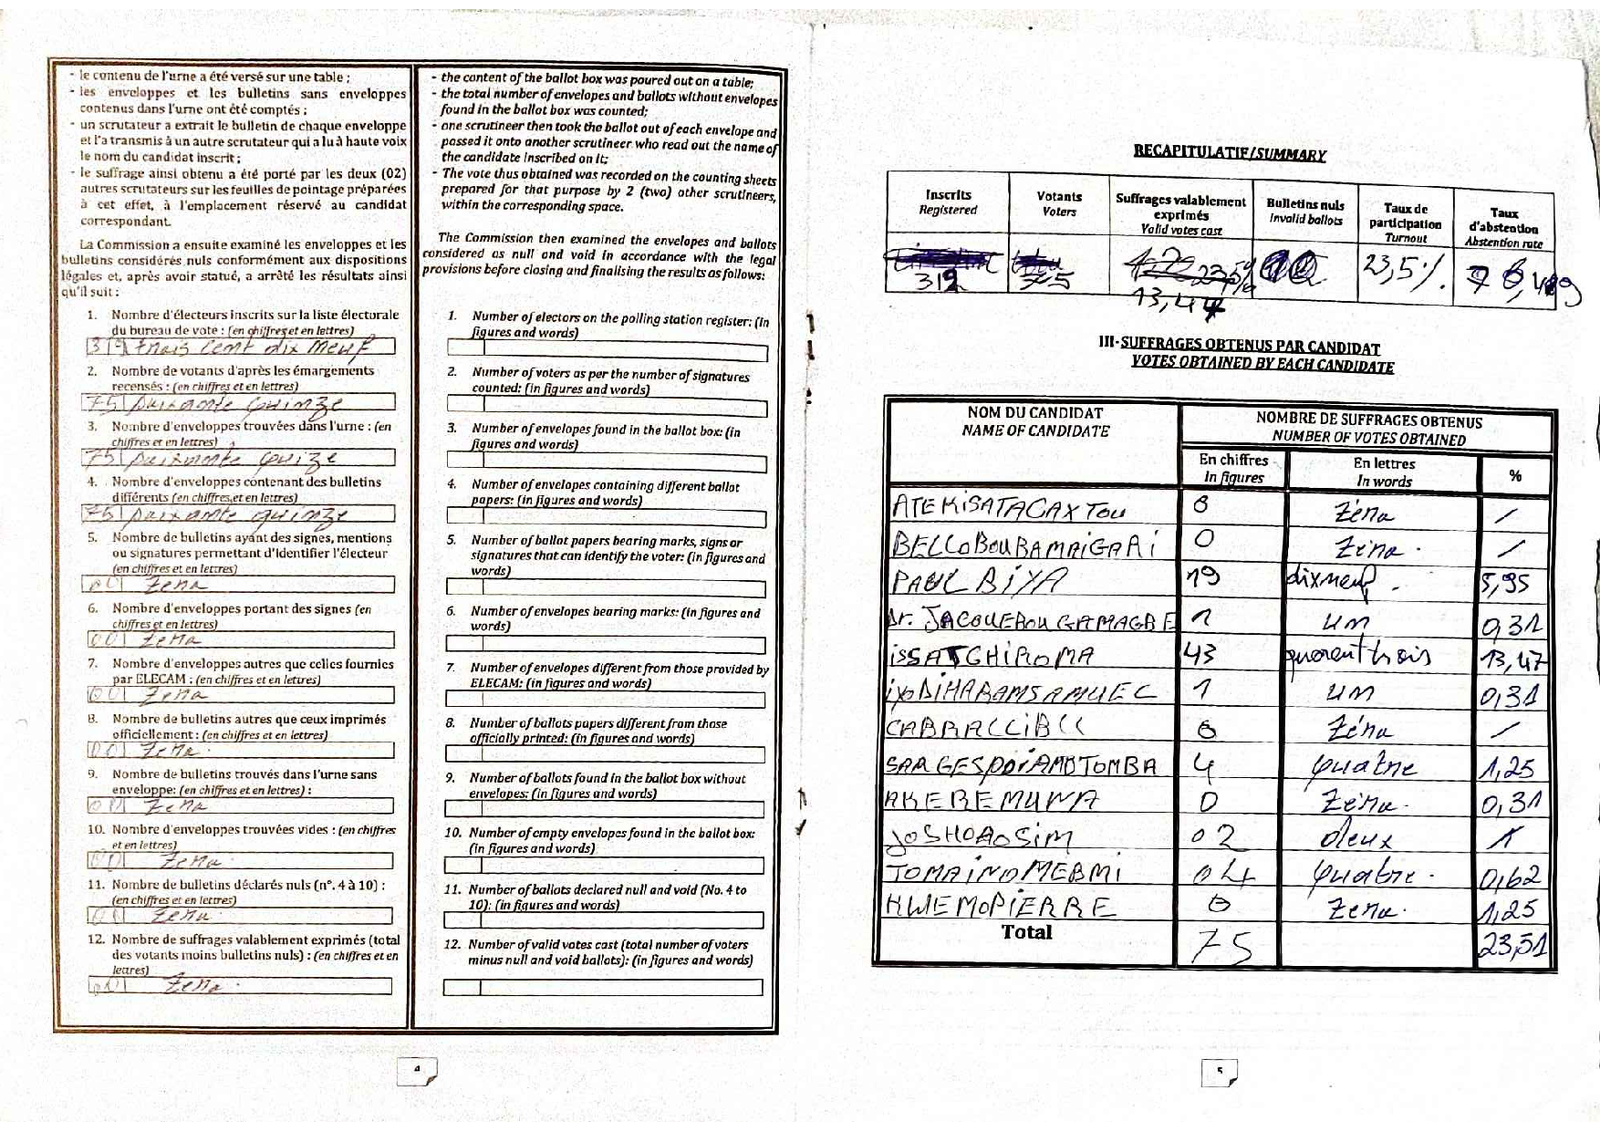 - le contenu de l'urne a été versé sur une table ;
- les enveloppes et les bulletins sans enveloppes
contenus dans l'urne ont été comptés ;
- un scrutateur a extrait le bulletin de chaque enveloppe
et l'a transmis à un autre scrutateur qui a lu à haute voix
le nom du candidat inscrit ;
- le suffrage ainsi obtenu a été porté par les deux (02)
autres scrutateurs sur les feuilles de pointage préparées
à cet effet, à l'emplacement réservé au candidat
correspondant.
La Commission a ensuite examiné les enveloppes et les
bulletins considérés nuls conformément aux dispositions
légales et, après avoir statué, a arrêté les résultats ainsi
qu'il suit :
1. Nombre d'électeurs inscrits sur la liste électorale
du bureau de vote : (en chiffres et en lettres)
319 trois cent dix neuf
2. Nombre de votants d'après les émargements
recensés : (en chiffres et en lettres)
75 soixante quinze
3. Nombre d'enveloppes trouvées dans l'urne : (en
chiffres et en lettres)
75 soixante quize
4. Nombre d'enveloppes contenant des bulletins
différents (en chiffres et en lettres)
75 soixante quinze
5. Nombre de bulletins ayant des signes, mentions
ou signatures permettant d'identifier l'électeur
(en chiffres et en lettres)
00 Zéro
6. Nombre d'enveloppes portant des signes (en
chiffres et en lettres)
00 Zéro
7. Nombre d'enveloppes autres que celles fournies
par ELECAM : (en chiffres et en lettres)
00 Zéro
8. Nombre de bulletins autres que ceux imprimés
officiellement : (en chiffres et en lettres)
00 Zéro
9. Nombre de bulletins trouvés dans l'urne sans
enveloppe: (en chiffres et en lettres) :
00 Zéro
10. Nombre d'enveloppes trouvées vides : (en chiffres
et en lettres)
00 Zéro
11. Nombre de bulletins déclarés nuls (n°. 4 à 10) :
(en chiffres et en lettres)
00 Zéro
12. Nombre de suffrages valablement exprimés (total
des votants moins bulletins nuls) : (en chiffres et en
lettres)
00 Zéro
- the content of the ballot box was poured out on a table;
- the total number of envelopes and ballots without envelopes
found in the ballot box was counted;
- one scrutineer then took the ballot out of each envelope and
passed it onto another scrutineer who read out the name of
the candidate inscribed on it;
- The vote thus obtained was recorded on the counting sheets
prepared for that purpose by 2 (two) other scrutineers,
within the corresponding space.
The Commission then examined the envelopes and ballots
considered as null and void in accordance with the legal
provisions before closing and finalising the results as follows:
1. Number of electors on the polling station register: (in
figures and words)
2. Number of voters as per the number of signatures
counted: (in figures and words)
3. Number of envelopes found in the ballot box: (in
figures and words)
4. Number of envelopes containing different ballot
papers: (in figures and words)
5. Number of ballot papers bearing marks, signs or
signatures that can identify the voter: (in figures and
words)
6. Number of envelopes bearing marks: (in figures and
words)
7. Number of envelopes different from those provided by
ELECAM: (in figures and words)
8. Number of ballots papers different from those
officially printed: (in figures and words)
9. Number of ballots found in the ballot box without
envelopes: (in figures and words)
10. Number of empty envelopes found in the ballot box:
(in figures and words)
11. Number of ballots declared null and void (No. 4 to
10): (in figures and words)
12. Number of valid votes cast (total number of voters
minus null and void ballots): (in figures and words)
4
RECAPITULATIF/SUMMARY
Inscrits Registered
Votants Voters
Suffrages valablement exprimés Valid votes cast
Bulletins nuls Invalid ballots
Taux de participation Turnout
Taux d'abstention Abstention rate
319 75 13,47 23,5%
III-SUFFRAGES OBTENUS PAR CANDIDAT
VOTES OBTAINED BY EACH CANDIDATE
NOM DU CANDIDAT
NAME OF CANDIDATE
NOMBRE DE SUFFRAGES OBTENUS
NUMBER OF VOTES OBTAINED
En chiffres In figures
En lettres In words
%
ATEKISATACAXTou 0 Zéro /
BELLOBOUBAMAIGARi 0 Zéro /
PAUL BIYA 19 dixneuf 5,95
Dr. JACQUEBOUGAMAGBE 1 un 0,31
iSSATCHIROMA 43 quarent trois 13,47
iyoDIHARAMSAMUEL 1 un 0,31
CABRALLIBII 0 Zéro /
SARGESPOiRAMOTOMBA 4 quatre 1,25
AKEREMUNA 0 Zéro 0,31
JOSHOAOSIM 02 deux 1
TOMAINOMEBMI 04 quatre 0,62
KWEMOPIERRE 0 Zéro 1,25
Total 75 23,51
5